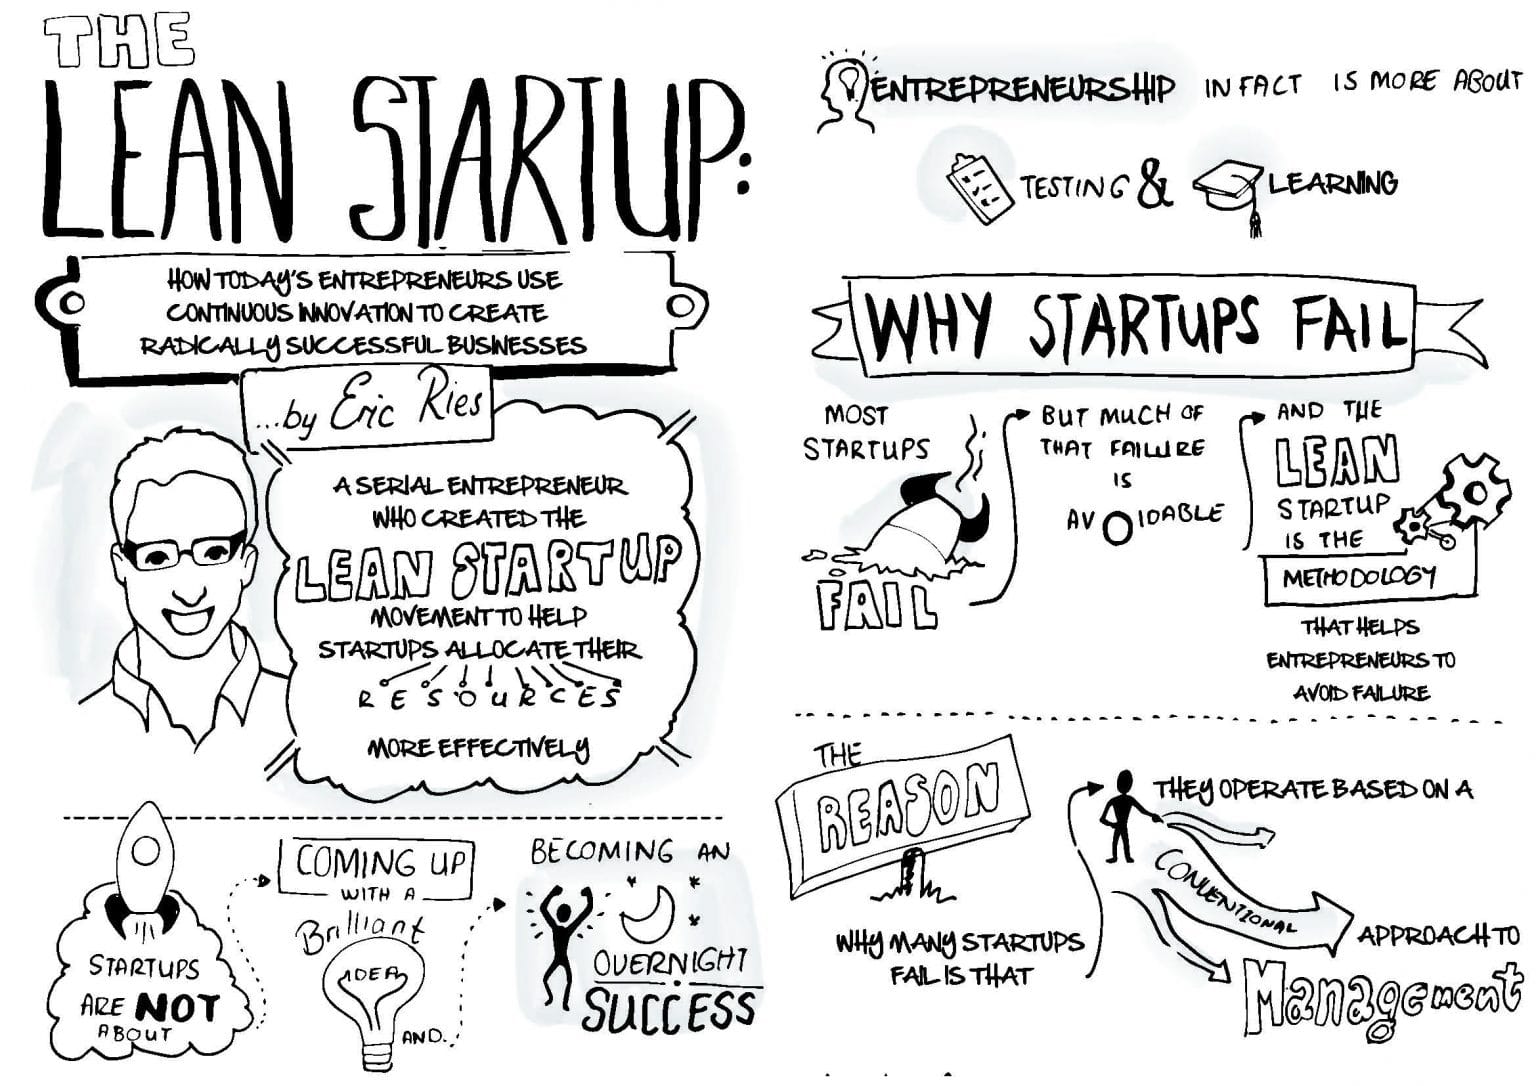 THE
LEAN STARTUP:
HOW TODAY'S ENTREPRENEURS USE
CONTINUOUS INNOVATION TO CREATE
RADICALLY SUCCESSFUL BUSINESSES
...by Eric Ries
A SERIAL ENTREPRENEUR
WHO CREATED THE
LEAN STARTUP
MOVEMENT TO HELP
STARTUPS ALLOCATE THEIR
RESOURCES
MORE EFFECTIVELY
STARTUPS
ARE NOT
ABOUT
COMING UP
WITH A
Brilliant
IDEA
AND..
BECOMING AN
OVERNIGHT
SUCCESS
ENTREPRENEURSHIP IN FACT IS MORE ABOUT
TESTING & LEARNING
WHY STARTUPS FAIL
MOST
STARTUPS
FAIL
BUT MUCH OF
THAT FAILURE
IS
AVOIDABLE
AND THE
LEAN
STARTUP
IS THE
METHODOLOGY
THAT HELPS
ENTREPRENEURS TO
AVOID FAILURE
THE
REASON
WHY MANY STARTUPS
FAIL IS THAT
THEY OPERATE BASED ON A
CONVENTIONAL
APPROACH TO
Management